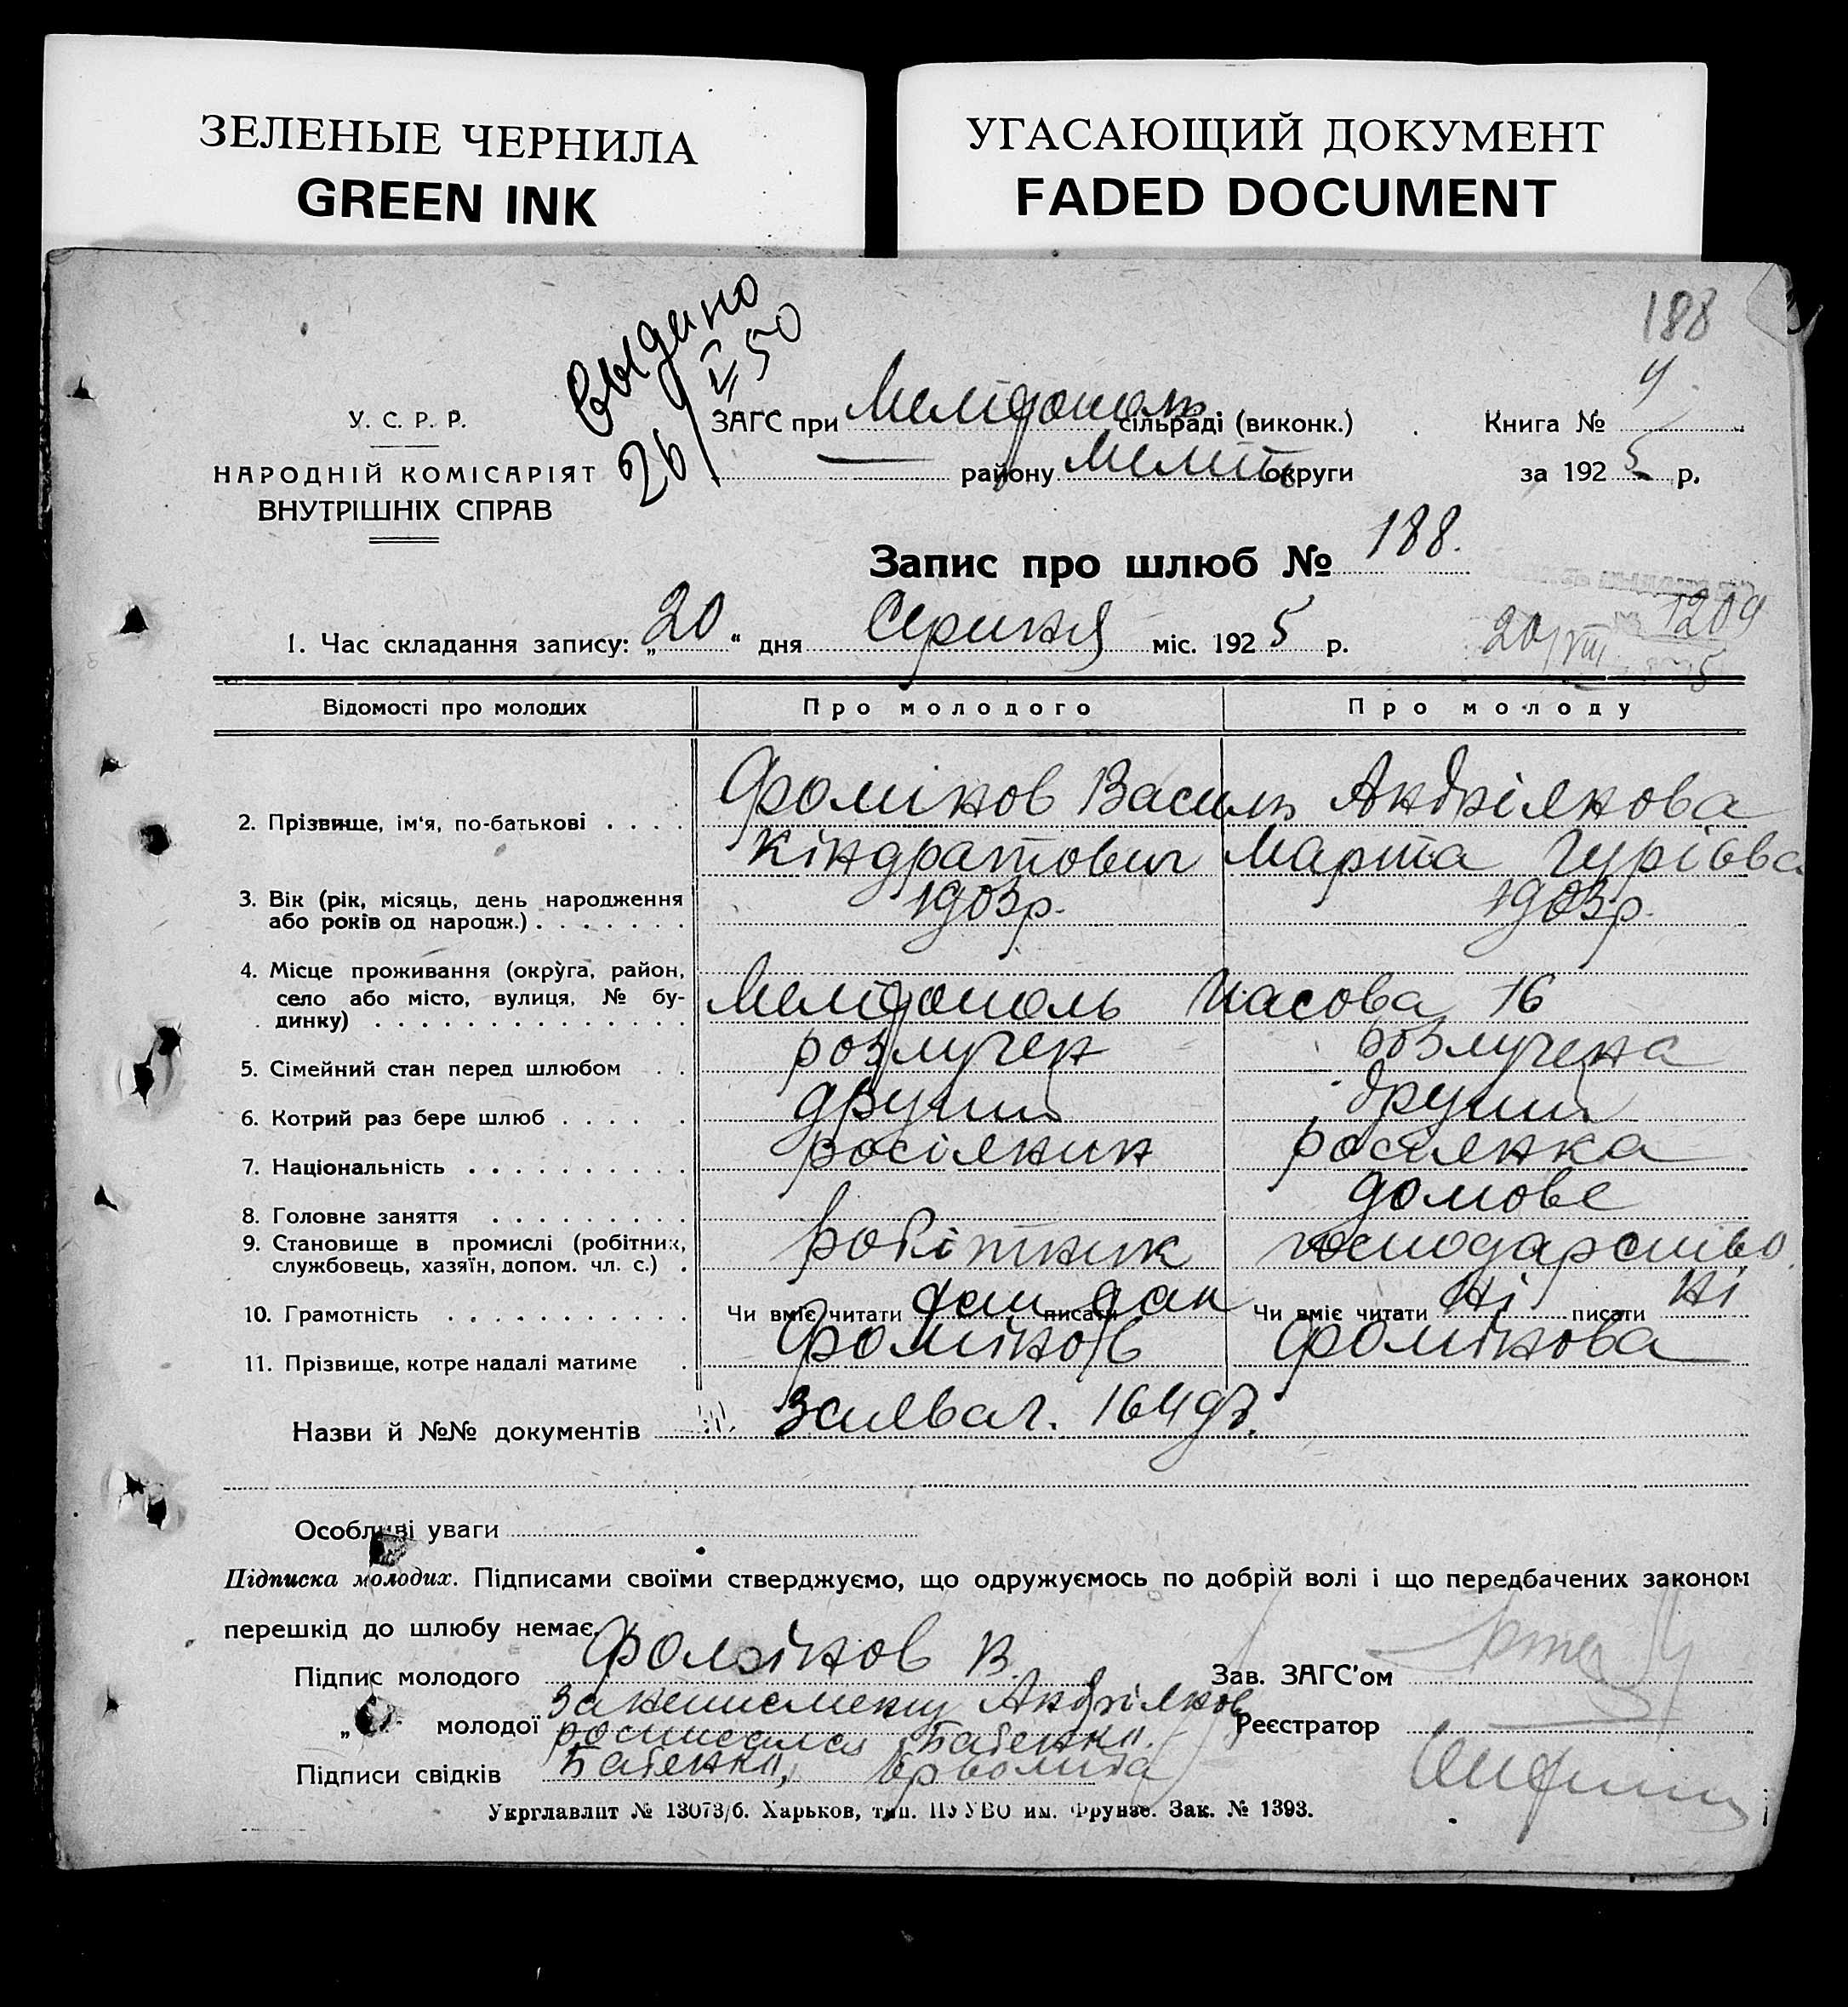 ЗЕЛЕНЫЕ ЧЕРНИЛА
GREEN INK
УГАСАЮЩИЙ ДОКУМЕНТ
FADED DOCUMENT
188
Выдано
26/II 50
У. С. Р. Р.
НАРОДНІЙ КОМІСАРІЯТ
ВНУТРІШНІХ СПРАВ
ЗАГС при Мелідополь сільраді (виконк.)
— району Меліт округи
Книга № 4
за 1925 р.
Запис про шлюб № 188.
1. Час складання запису: „20“ дня Серпня міс. 1925 р.
1209
20/VIII 5
Відомості про молодих Про молодого Про молоду
2. Прізвище, ім'я, по-батькові . . . . Фомінов Василь Андріянова
Кіндратович Марта Гурієвва
3. Вік (рік, місяць, день народження 1903р. 1903р.
або років од народж.) . . . . . . .
4. Місце проживання (округа, район,
село або місто, вулиця, № бу- Мелідополь Часова 16
динку) . . . . . . . . . . . . . .
5. Сімейний стан перед шлюбом . . розлучен розлучена
6. Котрий раз бере шлюб . . . . . другий другий
7. Національність . . . . . . . . . . росіянин росіянка
8. Головне заняття . . . . . . . . . домове
9. Становище в промислі (робітник, робітник господарство.
службовець, хазяїн, допом. чл. с.) .
10. Грамотність . . . . . . . . . . . Чи вміє читати писати Чи вміє читати Ні писати Ні
11. Прізвище, котре надалі матиме . Фомінов Фомінова
Назви й №№ документів 164
Особливі уваги
Підписка молодих. Підписами своїми стверджуємо, що одружуємось по добрій волі і що передбачених законом
перешкід до шлюбу немає.
Підпис молодого Фомінов В. Зав. ЗАГС'ом
За неписменну Андріянов
„ молодої росписался Бабенко. Реєстратор
Підписи свідків Бабенко,
Укрглавлит № 13073/б. Харьков, тип. ПУУВО им. Фрунзе. Зак. № 1393.